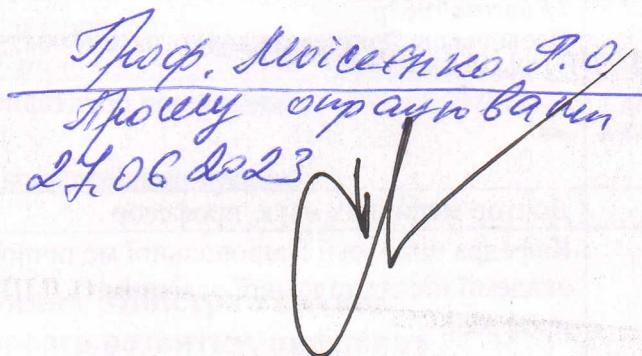 Проф. Моісеєнко Р.О
Прошу опрацювати
27.06 2023